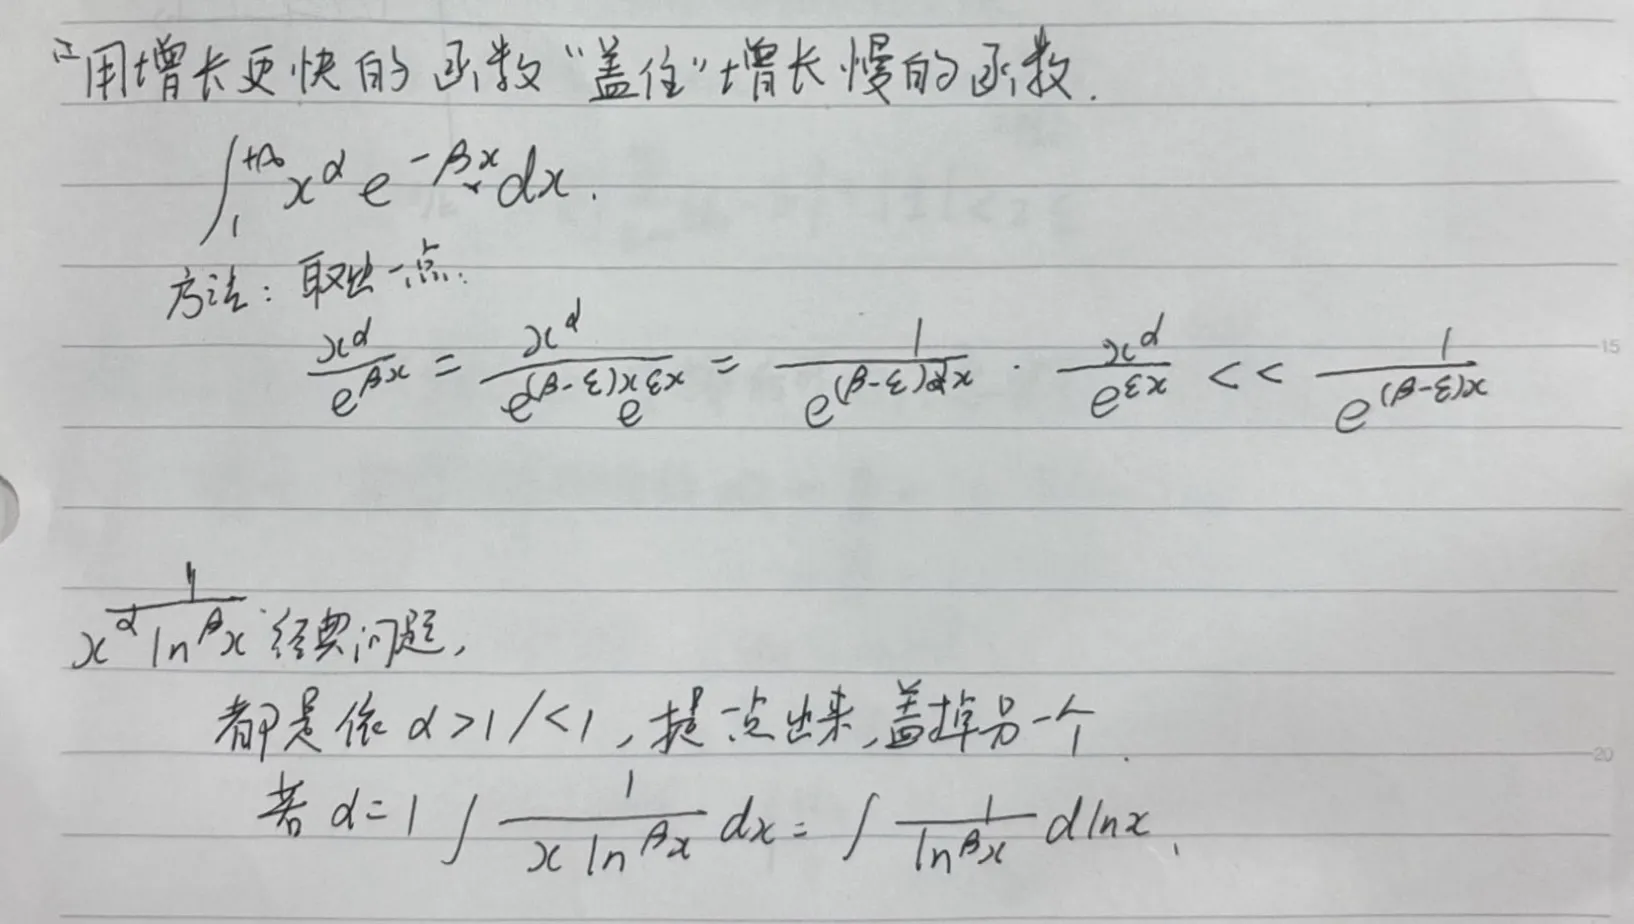 "用增长更快的函数"盖住"增长慢的函数.
∫₁^{+∞} x^α e^{-βx} dx.
方法: 取出一点.
x^α/e^{βx} = x^α/(e^{(β-ε)x} e^{εx}) = 1/e^{(β-ε)x} · x^α/e^{εx} << 1/e^{(β-ε)x}
1/(x^α ln^β x) 经典问题,
都是依 α>1/<1, 提一点出来, 盖掉另一个.
若 α=1 ∫ 1/(x ln^β x) dx = ∫ 1/(ln^β x) d lnx.
15
20